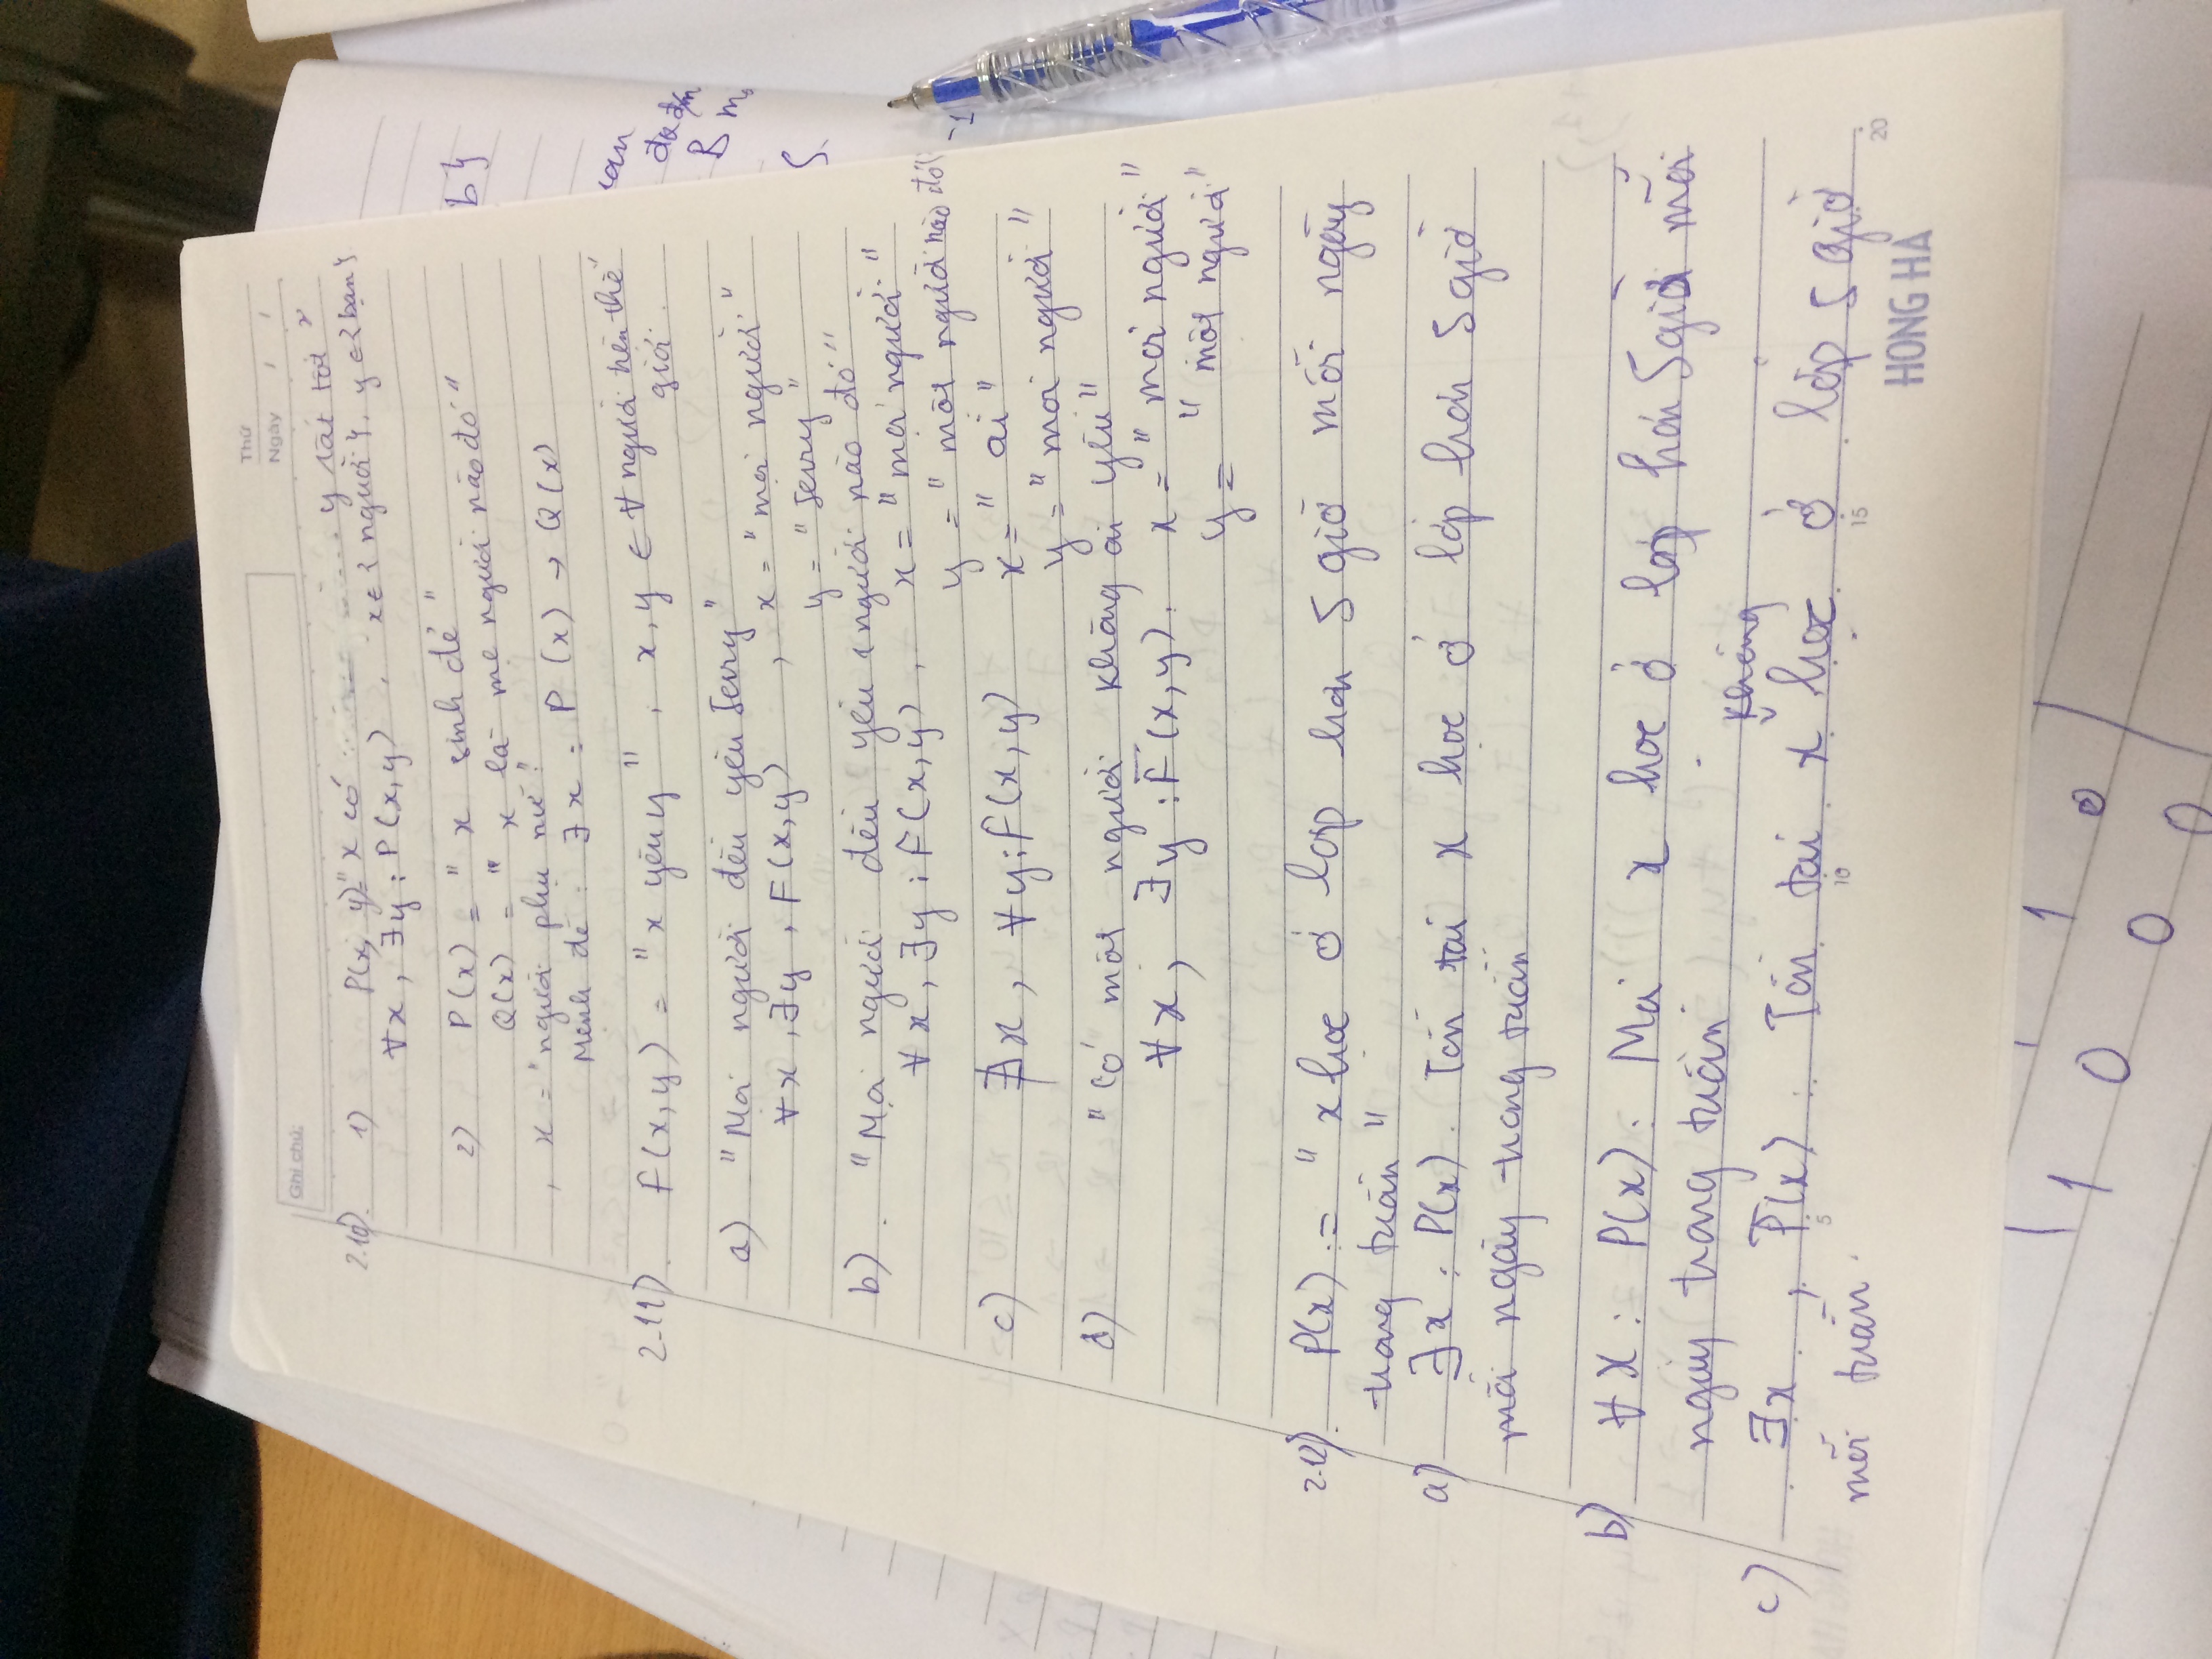 Thứ
Ngày / /
Ghi chú:
2.10). 1) P(x, y)=" x có y rất tốt "
∀x, ∃y : P(x,y) , x ∈ { người }, y ∈ { bạn }
2) P(x) = " x sinh đẻ "
Q(x) = " x là mẹ người nào đó "
, x = "người phụ nữ".
Mệnh đề : ∃x : P(x) → Q(x)
2.11). F(x,y) = " x yêu y " , x, y ∈ ∀ người trên thế
giới.
a) "Mọi người đều yêu Jerry"
∀x, ∃y, F(x,y) , x = "mọi người"
y = "Jerry"
b). "Mọi người đều yêu 1 người nào đó"
∀x, ∃y : F(x,y), x = "mọi người"
y = "một người nào đó"
c) ∄x, ∀y : F(x,y) x = "ai"
y = "mọi người"
d) "Có một người không ai yêu"
∀x, ∃y : F̅(x,y). x = "mọi người"
y = "một người"
2.12). P(x) := " x học ở lớp hơn 5 giờ mỗi ngày
trong tuần "
a) ∃x : P(x). Tồn tại x học ở lớp hơn 5 giờ
mỗi ngày trong tuần
b) ∀x : P(x). Mọi x học ở lớp hơn 5 giờ mỗi
ngày trong tuần
không
c) ∃x , P̅(x) . Tồn tại x học ở lớp 5 giờ
mỗi tuần.
5 10 15 20
HONG HA
b}
đa
B
S.
-1
1 1
1 0 0
0 0